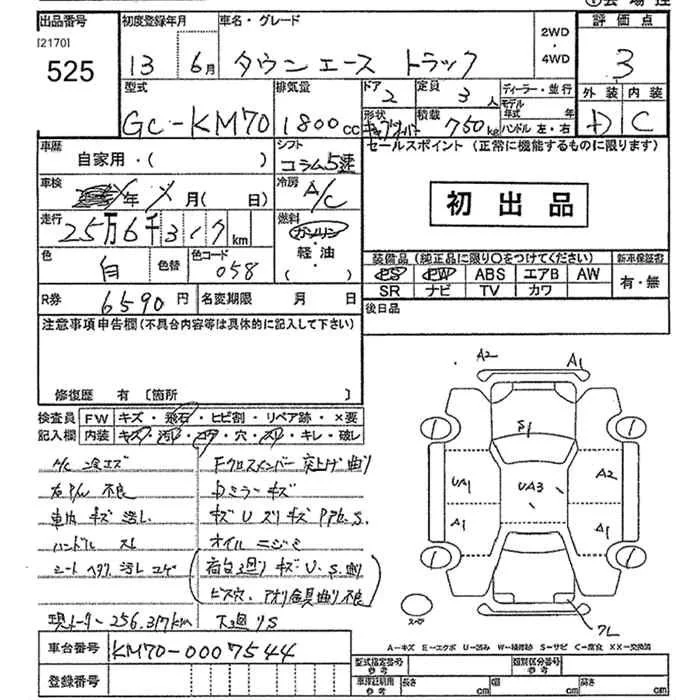 出品番号 初度登録年月 車名・グレード 2WD・4WD 評価点
[2170]
525 13 6月 タウンエース トラック 3
型式 排気量 ドア 定員 ディーラー・並行 外装 内装
GC-KM70 1800cc 2 3人 モデル年式 年 D C
形状 積載 750kg ハンドル 左・右
車歴 自家用・( ) シフト コラム5速 セールスポイント (正常に機能するものに限ります)
車検 年 月(日) 冷房 A/C 初出品
走行 25万6千317km 燃料 ガソリン
軽・油
( )
色 白 色替 色コード 058
装備品 (純正品に限り○をつけてください) 新車保証書
PS PW ABS エアB AW 有・無
SR ナビ TV カワ
R券 6590円 名変期限 月 日 後日品
注意事項申告欄(不具合内容等は具体的に記入して下さい)
修復歴 有〔箇所 〕
検査員 FW キズ・飛石・ヒビ割・リペア跡・×要
記入欄 内装 キズ・汚レ・コゲ・穴・スレ・キレ・破レ
A/C 冷エズ Fクロスメンバー 突上げ曲り
右P/W 不良 ミラーキズ
車内 キズ 汚レ キズ U ズリキズ S.
ハンドル スレ オイル ニジミ
シート ヘタリ 汚レ コゲ (荷台廻り キズ U. S. 曲り
ビス穴. アオリ金具曲り 不良)
現メーター 256,317km 下廻りS
A2 A1
S1
UA1 UA3 A2
A1 A1
スペア
A-キズ E-エクボ U-凹み W-補修跡 S-サビ C-腐食 XX-交換済
車台番号 KM70-0007544
登録番号
型式指定番号 参考 類別区分番号 参考
車庫証明用 参考 長さ cm 幅 cm 高さ cm